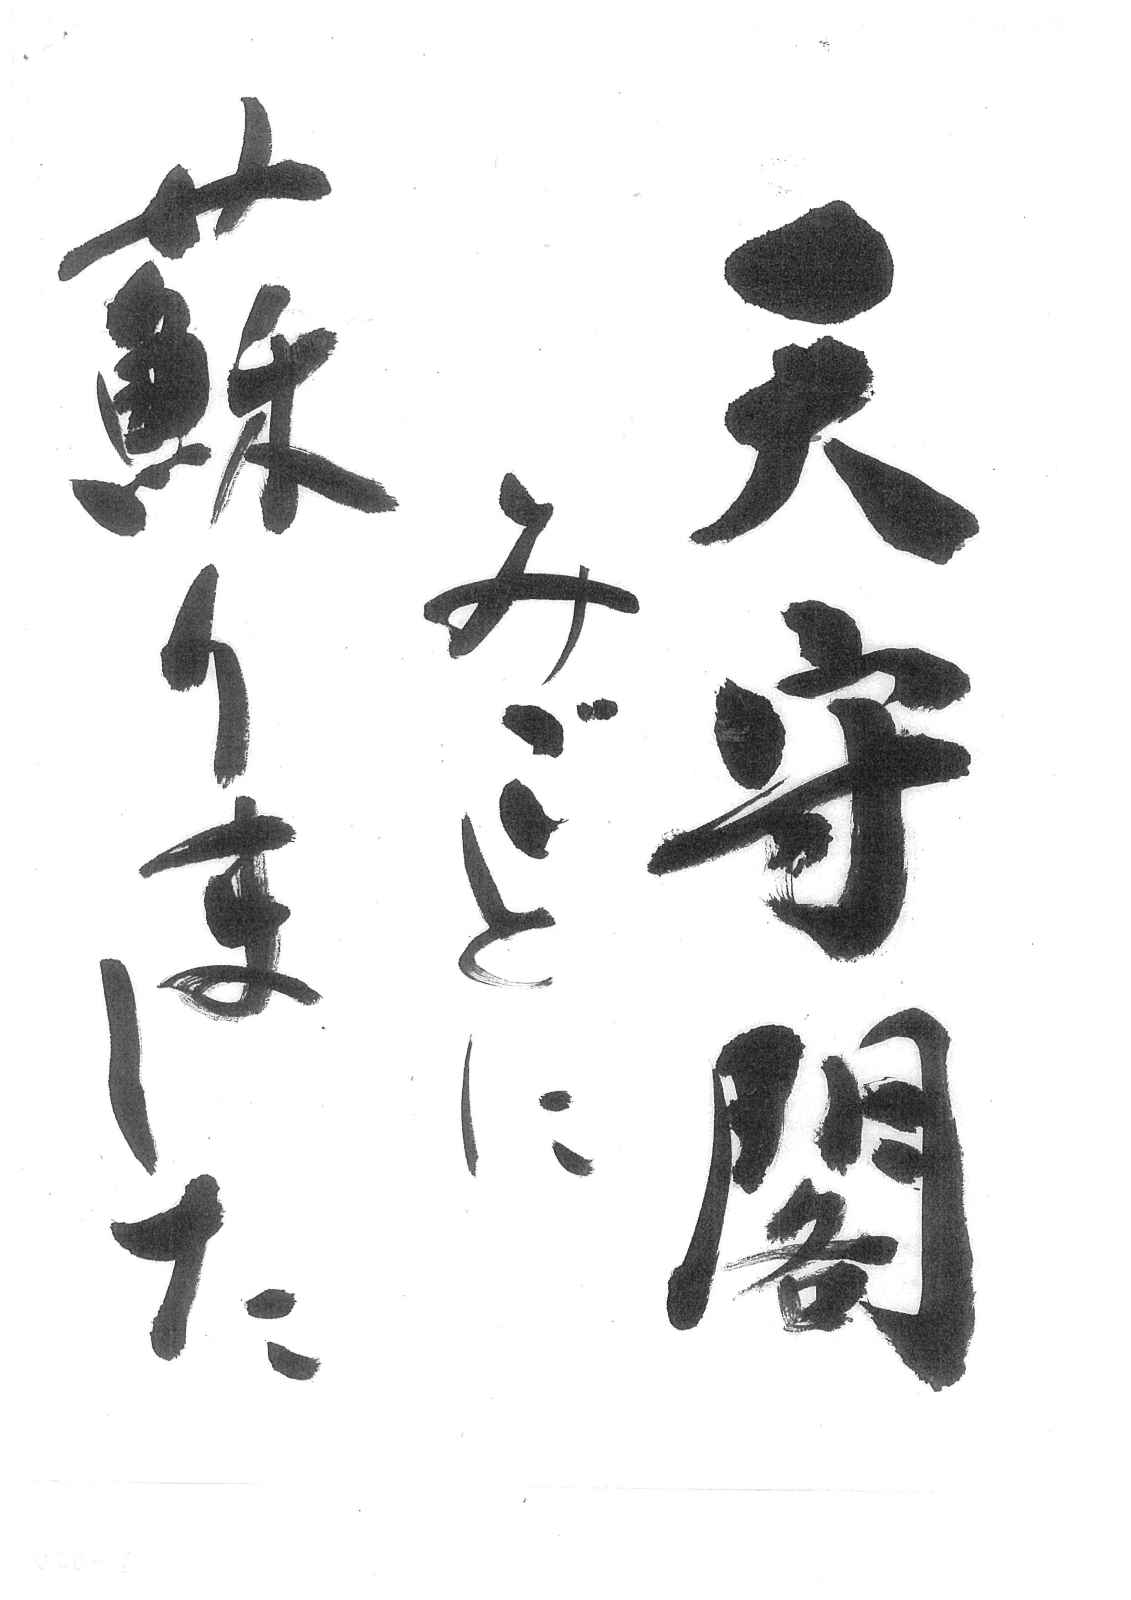 天守閣
みごとに
蘇りました